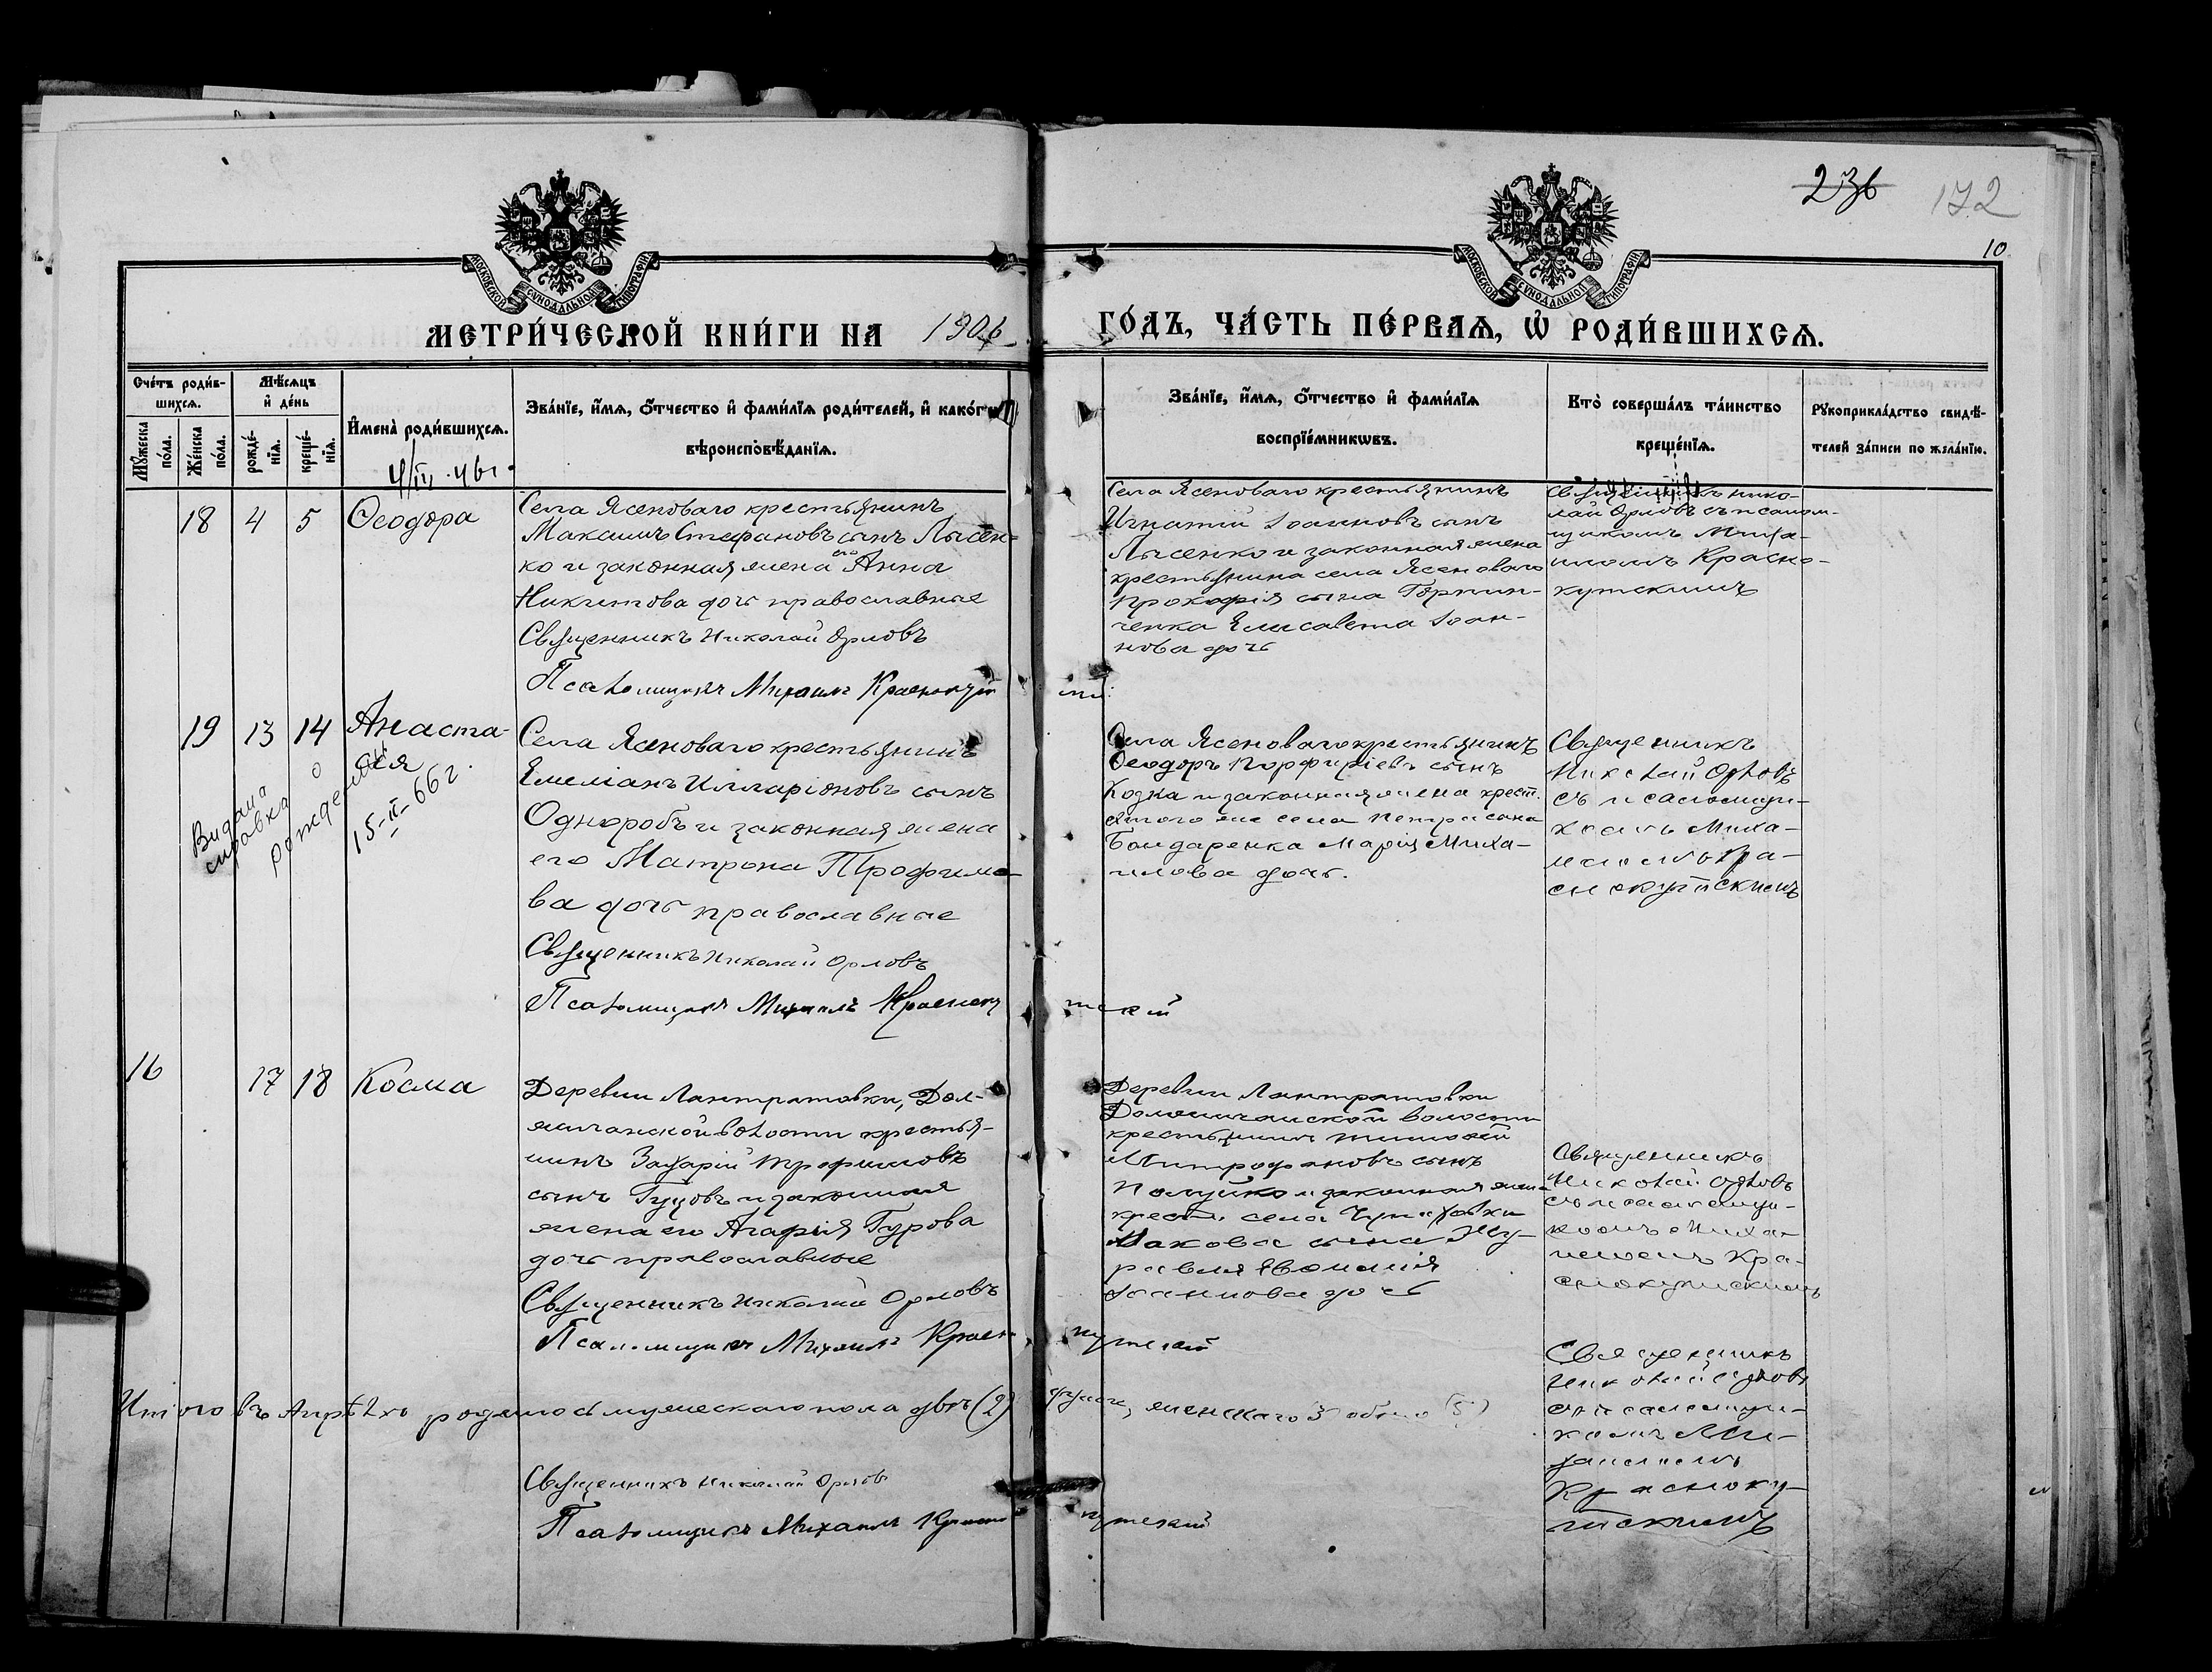 236 172
10
МОСКОВСКОЙ СѴНОДАЛЬНОЙ ТИПОГРАФІИ
МОСКОВСКОЙ СѴНОДАЛЬНОЙ ТИПОГРАФІИ
МЕТРИ́ЧЕСКОЙ КНИ́ГИ НА 1906 ГО́ДЪ, ЧА́СТЬ ПЕ́РВАѦ, Ѡ҆ РОДИ́ВШИХСѦ.
Сче́тъ роди́в-
шихсѧ.
Мꙋ́жеска
по́ла.
Же́нска
по́ла.
Мѣ́сѧцъ
и҆ де́нь
рожде́-
нїѧ.
креще́-
нїѧ.
И҆мена̀ роди́вшихсѧ.
Зва́нїе, и҆́мѧ, ѻ҆́тчество и҆ фами́лїѧ роди́телей, и҆ како́гѡ
вѣроисповѣ́данїѧ.
Зва́нїе, и҆́мѧ, ѻ҆́тчество и҆ фами́лїѧ
воспрїе́мникѡвъ.
Кто̀ соверша́лъ та́инство
креще́нїѧ.
Рꙋкоприкла́дство свидѣ́-
телей за́писи по жела́нїю.
4/III 46г.
18 4 5 Ѳеодора
Села Ясеноваго крестьянинъ
Максимъ Стефановъ сынъ Лысен-
ко и законная жена его Анна
Никитова дочь православные
Священникъ Николай Орловъ
Псаломщикъ Михаилъ Краснокутскій
Села Ясеноваго крестьянинъ
Игнатій Іоанновъ сынъ
Лысенко и законная жена
крестьянина села Ясеноваго
Прокофія сына Горпин-
ченка Елисавета Іоан-
нова дочь
Священникъ Нико-
лай Орловъ съ псалом-
щикомъ Миха-
иломъ Красно-
кутскимъ
19 13 14 Анаста-
сія
Видана
справка о
рождении
15-II-66г.
Села Ясеноваго крестьянинъ
Емеліанъ Илларіоновъ сынъ
Однороб и законная жена
его Матрона Трофимо-
ва дочь православные
Священникъ Николай Орловъ
Псаломщикъ Михаилъ Краснокутскій
Села Ясеноваго крестьянинъ
Ѳеодоръ Порфиріевъ сынъ
Козка и законная жена крест.
этого же села
Бондаренка Марія Миха-
илова дочь.
Священникъ
Николай Орловъ
съ псаломщи-
комъ Миха-
иломъ Кра-
снокутскимъ
16 17 18 Косма
Деревни Лантратовки, Дол-
жичанской волости крестья-
нинъ Захарій Трофимовъ
сынъ Гуцовъ и законная
жена его Агафія Гурова
дочь православные
Священникъ Николай Орловъ
Псаломщикъ Михаилъ Краснокутскій
Деревни Лантратовки
волости
крестьянинъ Тимофей
Митрофановъ сынъ
Полуйко и законная жена
крест. села Чупаховки
Іакова сына Жу-
равля
Іоаннова дочь
Священникъ
Николай Орловъ
съ псаломщи-
комъ Миха-
иломъ Кра-
снокутскимъ
Итого въ Апрѣлѣ родилось мужескаго пола двѣ (2) души, женскаго 3 обоего (5)
Священникъ Николай Орловъ
Псаломщикъ Михаилъ Краснокутскій
Священникъ
Николай Орловъ
съ псаломщи-
комъ Ми-
хаиломъ
Красноку-
тскимъ